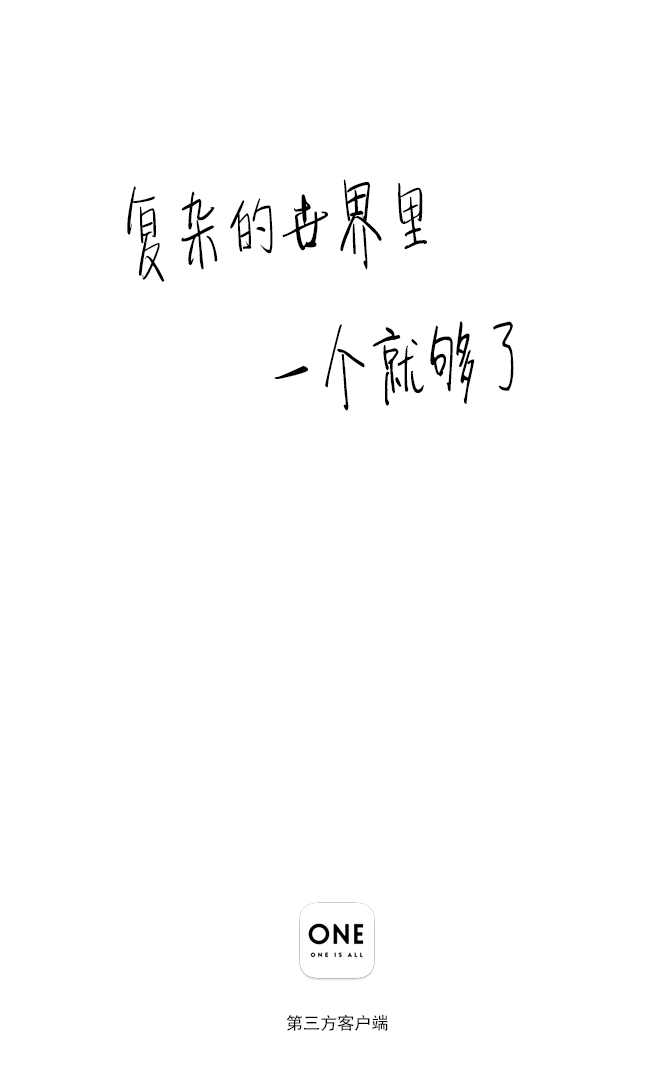 复杂的世界里
一个就够了
ONE
ONE IS ALL
第三方客户端